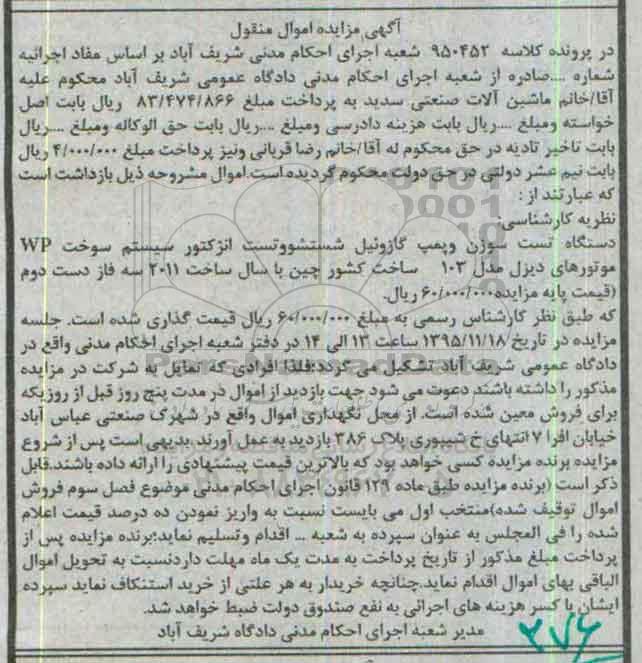 آگهی مزایده اموال منقول
در پرونده کلاسه ۹۵۰۴۵۲ شعبه اجرای احکام مدنی شریف آباد بر اساس مفاد اجرائیه
شماره ....صادره از شعبه اجرای احکام مدنی دادگاه عمومی شریف آباد محکوم علیه
آقا/خانم ماشین آلات صنعتی سدید به پرداخت مبلغ ۸۳/۴۷۴/۸۶۶ ریال بابت اصل
خواسته ومبلغ ....ریال بابت هزینه دادرسی ومبلغ ....ریال بابت حق الوکاله ومبلغ ....ریال
بابت تاخیر تادیه در حق محکوم له آقا/خانم رضا قربانی ونیز پرداخت مبلغ ۴/۰۰۰/۰۰۰ ریال
بابت نیم عشر دولتی در حق دولت محکوم گردیده است.اموال مشروحه ذیل بازداشت است
که عبارتند از :
نظریه کارشناسی:
دستگاه تست سوزن وپمپ گازوئیل شستشووتست انژکتور سیستم سوخت WP
موتورهای دیزل مدل ۱۰۳ ساخت کشور چین با سال ساخت ۲۰۱۱ سه فاز دست دوم
(قیمت پایه مزایده۶۰/۰۰۰/۰۰۰ ریال.
که طبق نظر کارشناس رسمی به مبلغ ۶۰/۰۰۰/۰۰۰ ریال قیمت گذاری شده است. جلسه
مزایده در تاریخ ۱۳۹۵/۱۱/۱۸ ساعت ۱۳ الی ۱۴ در دفتر شعبه اجرای احکام مدنی واقع در
دادگاه عمومی شریف آباد تشکیل می گردد؛فلذا افرادی که تمایل به شرکت در مزایده
مذکور را داشته باشند دعوت می شود جهت بازدید از اموال در مدت پنج روز قبل از روزیکه
برای فروش معین شده است. از محل نگهداری اموال واقع در شهرک صنعتی عباس آباد
خیابان افرا ۷ انتهای خ شیپوری پلاک ۳۸۶ بازدید به عمل آورند .بدیهی است پس از شروع
مزایده برنده مزایده کسی خواهد بود که بالاترین قیمت پیشنهادی را ارائه داده باشند.قابل
ذکر است (برنده مزایده طبق ماده ۱۲۹ قانون اجرای احکام مدنی موضوع فصل سوم فروش
اموال توقیف شده)منتخب اول می بایست نسبت به واریز نمودن ده درصد قیمت اعلام
شده را فی المجلس به عنوان سپرده به شعبه ... اقدام وتسلیم نماید؛برنده مزایده پس از
پرداخت مبلغ مذکور از تاریخ پرداخت به مدت یک ماه مهلت داردنسبت به تحویل اموال
الباقی بهای اموال اقدام نماید.چنانچه خریدار به هر علتی از خرید استنکاف نماید سپرده
ایشان با کسر هزینه های اجرائی به نفع صندوق دولت ضبط خواهد شد.
مدیر شعبه اجرای احکام مدنی دادگاه شریف آباد
۳۷۶